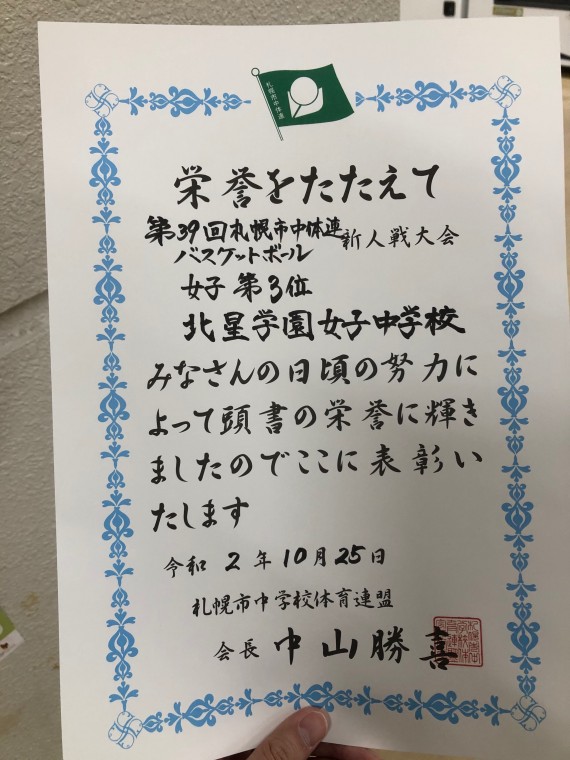 札幌市中体連
栄誉をたたえて
第39回札幌市中体連新人戦大会
バスケットボール
女子 第3位
北星学園女子中学校
みなさんの日頃の努力に
よって頭書の栄誉に輝き
ましたのでここに表彰い
たします
令和 2 年 10 月 25 日
札幌市中学校体育連盟
会長 中山勝喜